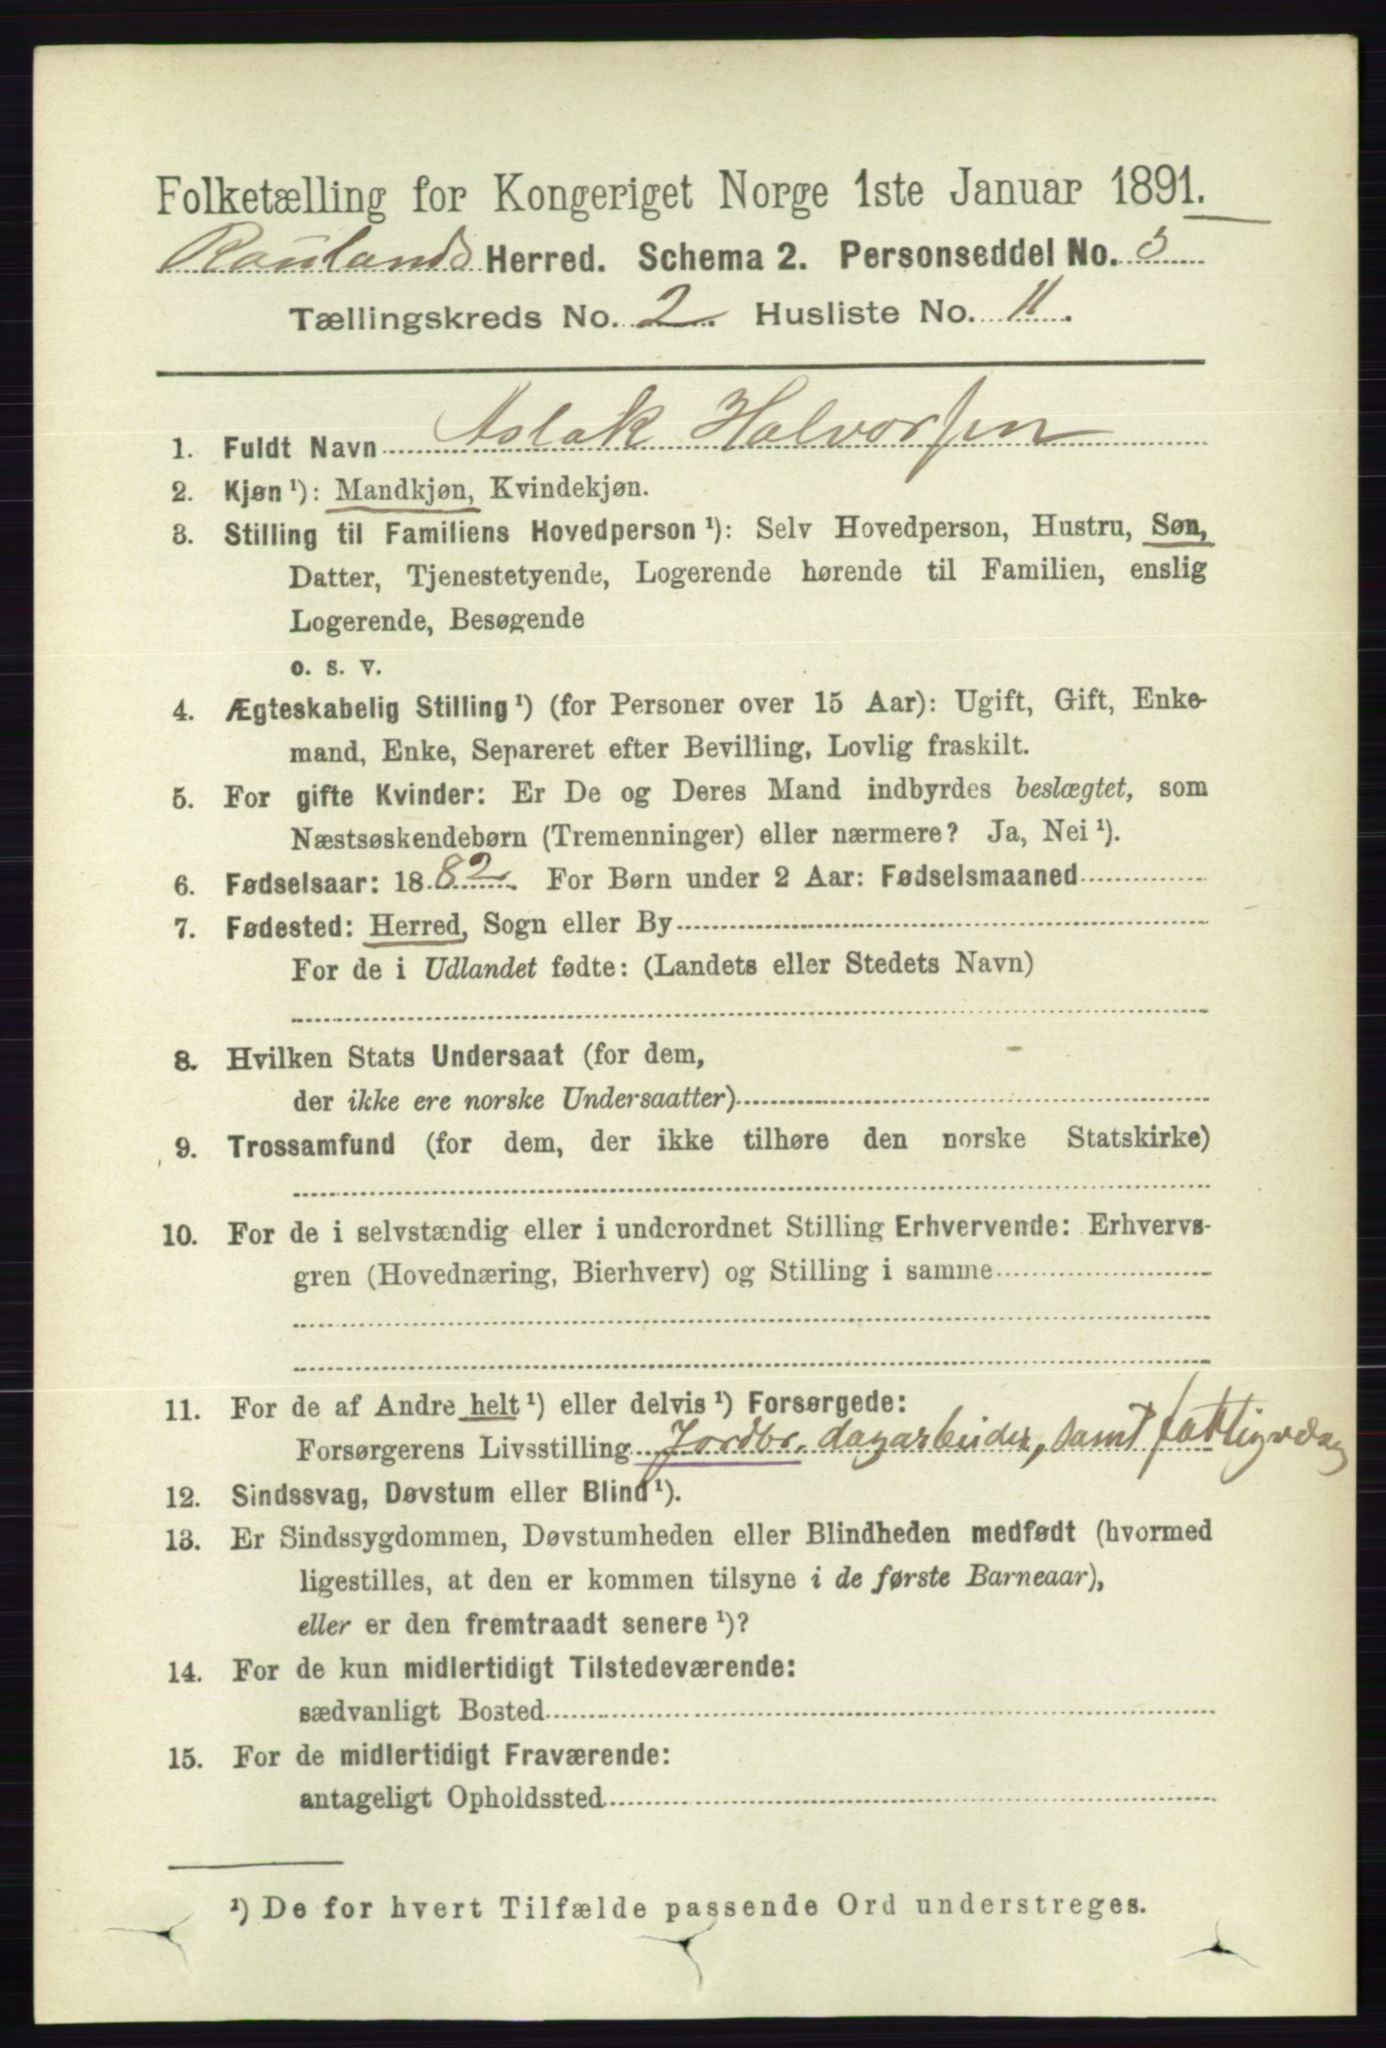 Folketælling for Kongeriget Norge 1ste Januar 1891.
Raulands Herred. Schema 2. Personseddel No. 5
Tællingskreds No. 2. Husliste No. 11.
1. Fuldt Navn Aslak Halvorsen
2. Kjøn ¹): Mandkjøn, Kvindekjøn.
3. Stilling til Familiens Hovedperson ¹): Selv Hovedperson, Hustru, Søn,
Datter, Tjenestetyende, Logerende hørende til Familien, enslig
Logerende, Besøgende
o. s. v.
4. Ægteskabelig Stilling ¹) (for Personer over 15 Aar): Ugift, Gift, Enke-
mand, Enke, Separeret efter Bevilling, Lovlig fraskilt.
5. For gifte Kvinder: Er De og Deres Mand indbyrdes beslægtet, som
Næstsøskendebørn (Tremenninger) eller nærmere? Ja, Nei ¹).
6. Fødselsaar: 1882. For Børn under 2 Aar: Fødselsmaaned
7. Fødested: Herred, Sogn eller By
For de i Udlandet fødte: (Landets eller Stedets Navn)
8. Hvilken Stats Undersaat (for dem,
der ikke ere norske Undersaatter)
9. Trossamfund (for dem, der ikke tilhøre den norske Statskirke)
10. For de i selvstændig eller i underordnet Stilling Erhvervende: Erhvervs-
gren (Hovednæring, Bierhverv) og Stilling i samme
11. For de af Andre helt ¹) eller delvis ¹) Forsørgede:
Forsørgerens Livsstilling Jordbr. dagarbeider, samt
12. Sindssvag, Døvstum eller Blind ¹).
13. Er Sindssygdommen, Døvstumheden eller Blindheden medfødt (hvormed
ligestilles, at den er kommen tilsyne i de første Barneaar),
eller er den fremtraadt senere ¹)?
14. For de kun midlertidigt Tilstedeværende:
sædvanligt Bosted
15. For de midlertidigt Fraværende:
antageligt Opholdssted
¹) De for hvert Tilfælde passende Ord understreges.